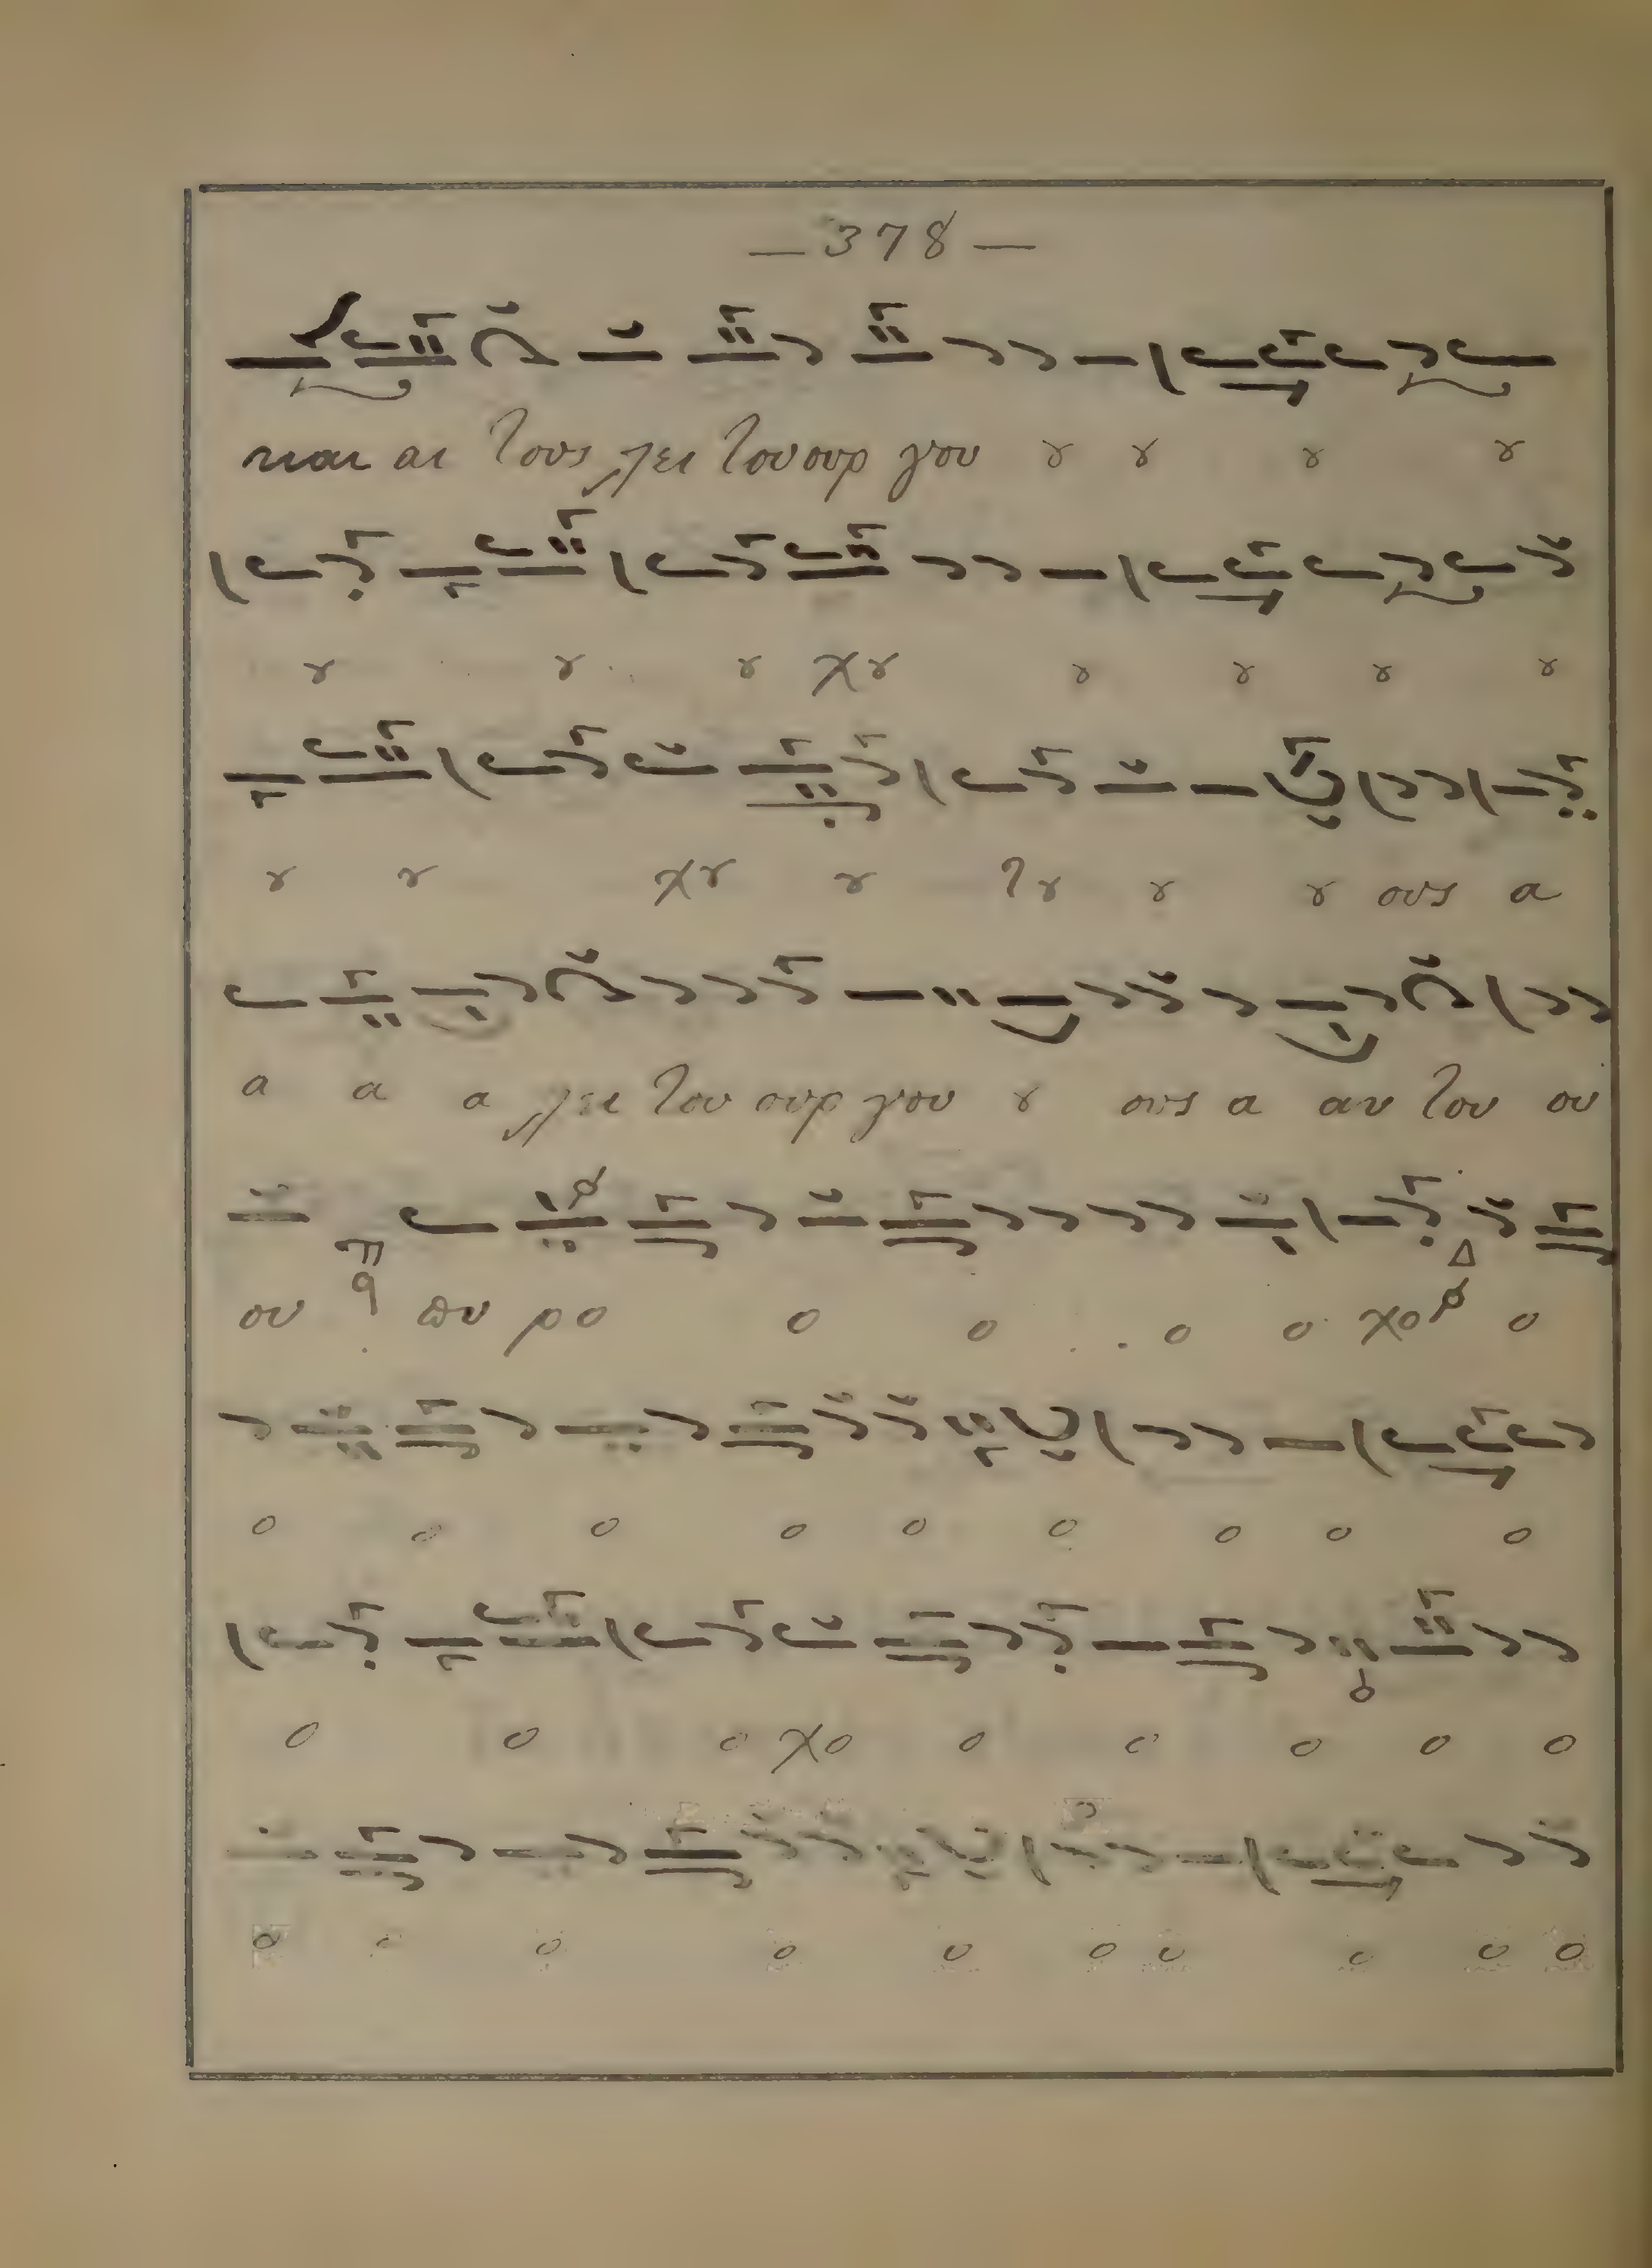 — 378 —
και αι τους λει τουουρ γου ȣ ȣ ȣ ȣ
ȣ ȣ ȣ χȣ ȣ ȣ ȣ ȣ
ȣ ȣ χȣ ȣ ȣ ȣ ȣ ους α
α α α λει του ουρ γου ȣ ους α αυ του ου
ου πυ ρο ο ο ο ο χο ο
ο ο ο ο ο ο ο ο ο
ο ο ο χο ο ο ο ο ο
ο ο ο ο ο ο ο ο ο ο